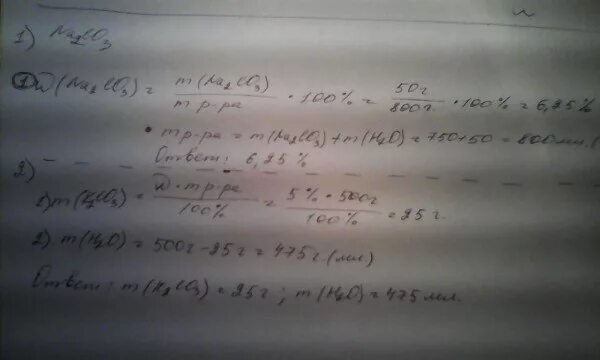 1) Na₂CO₃
① W(Na₂CO₃) = m(Na₂CO₃) / m р-ра · 100% = 50г / 800г · 100% = 6,25%
• m р-ра = m(Na₂CO₃) + m(H₂O) = 750 + 50 = 800 мл. (
Ответ: 6,25%
2)
1) m(K₂CO₃) = W · m р-ра / 100% = 5% · 500г / 100% = 25г.
2). m(H₂O) = 500г - 25г = 475г. (мл)
Ответ: m(K₂CO₃) = 25г; m(H₂O) = 475 мл.